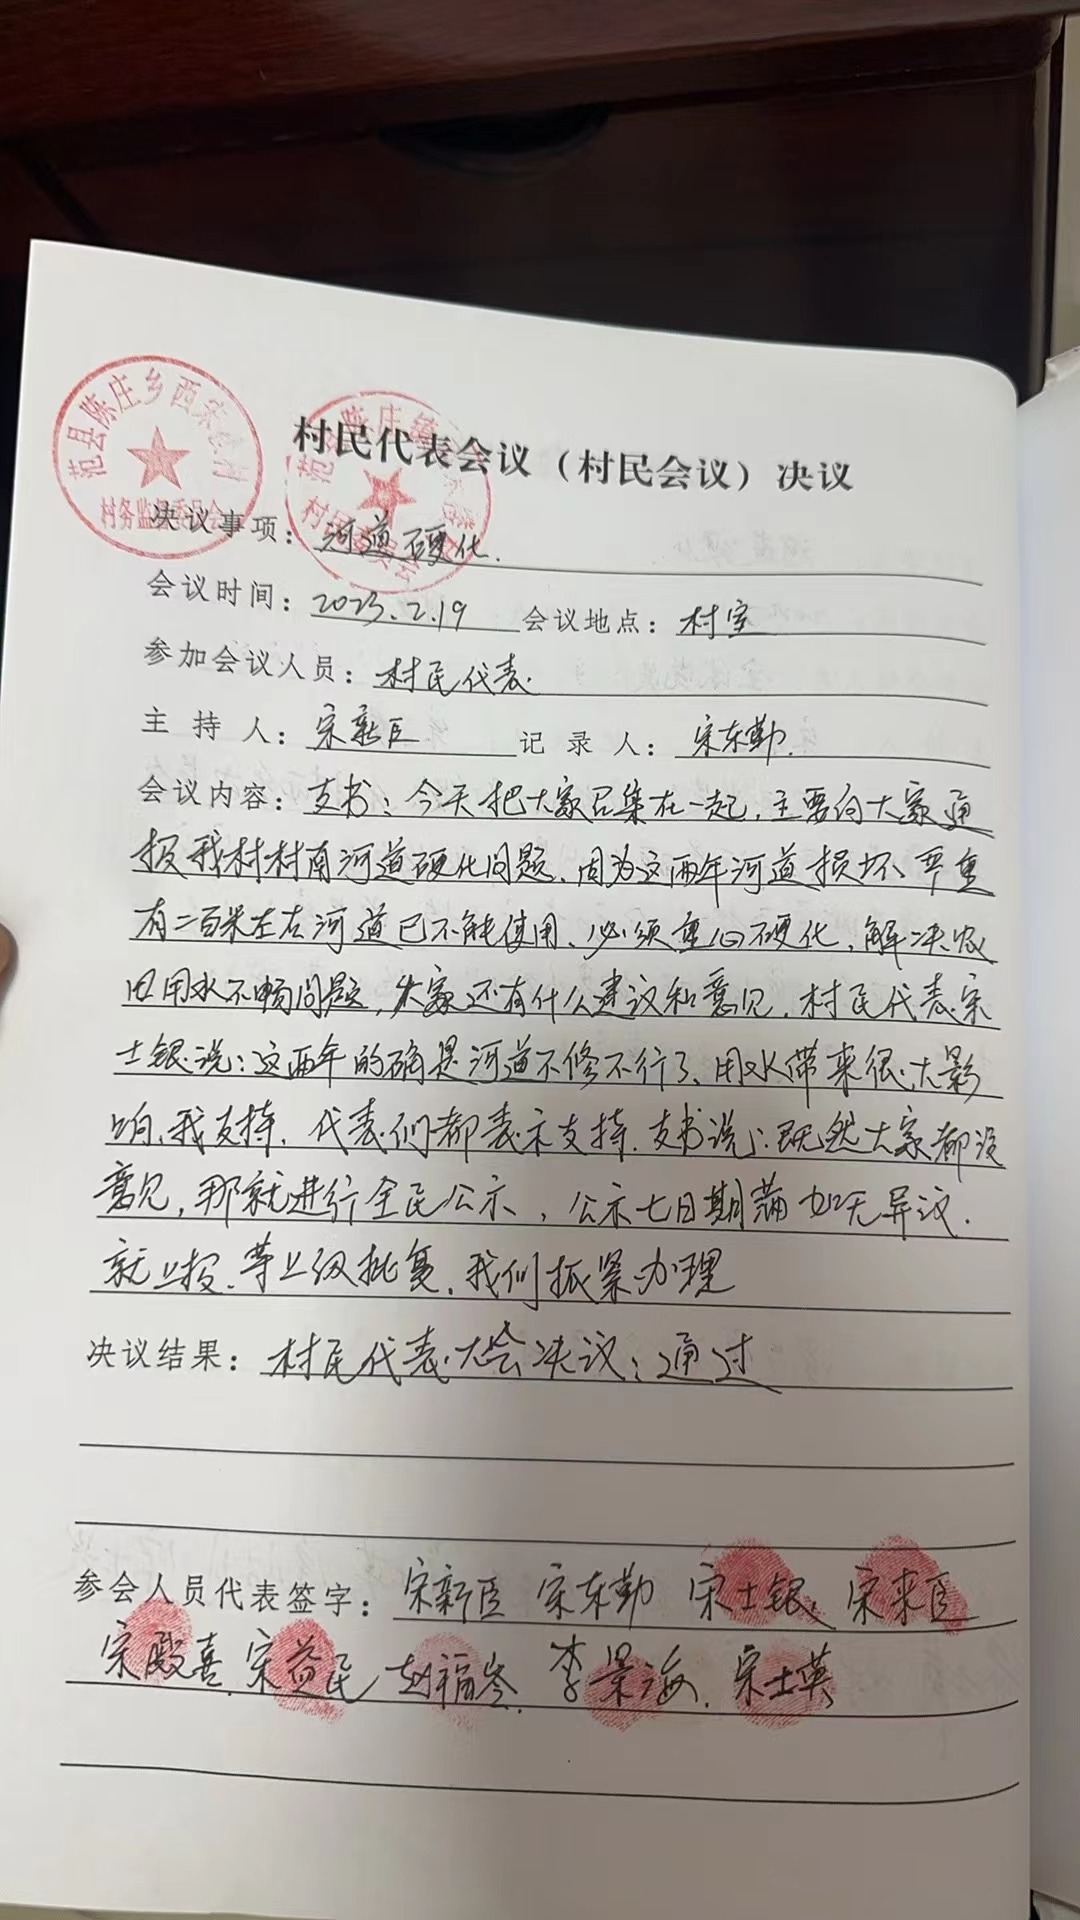 范县陈庄乡西宋楼村
村务监督委员会
陈庄镇
村民委员会
村民代表会议（村民会议）决议
决议事项：河道硬化.
会议时间：2023.2.19 会议地点：村室
参加会议人员：村民代表
主持人：宋新臣 记录人：宋东勤.
会议内容：支书：今天把大家召集在一起，主要向大家通
报我村村南河道硬化问题、因为这两年河道损坏严重
有二百米左右河道已不能使用、必须重心硬化，解决农
田用水不畅问题，大家还有什么建议和意见，村民代表宋
士银说：这两年的确是河道不修不行了、用水带来很大影
响、我支持，代表们都表示支持.支书说：既然大家都没
意见，那就进行全民公示，公示七日期满如无异议.
就上报.等上级批复，我们抓紧办理
决议结果：村民代表大会决议：通过
参会人员代表签字：宋新臣 宋东勤 宋士银 宋来臣
宋殿喜 宋益民 赵福岑. 李景海. 宋士英